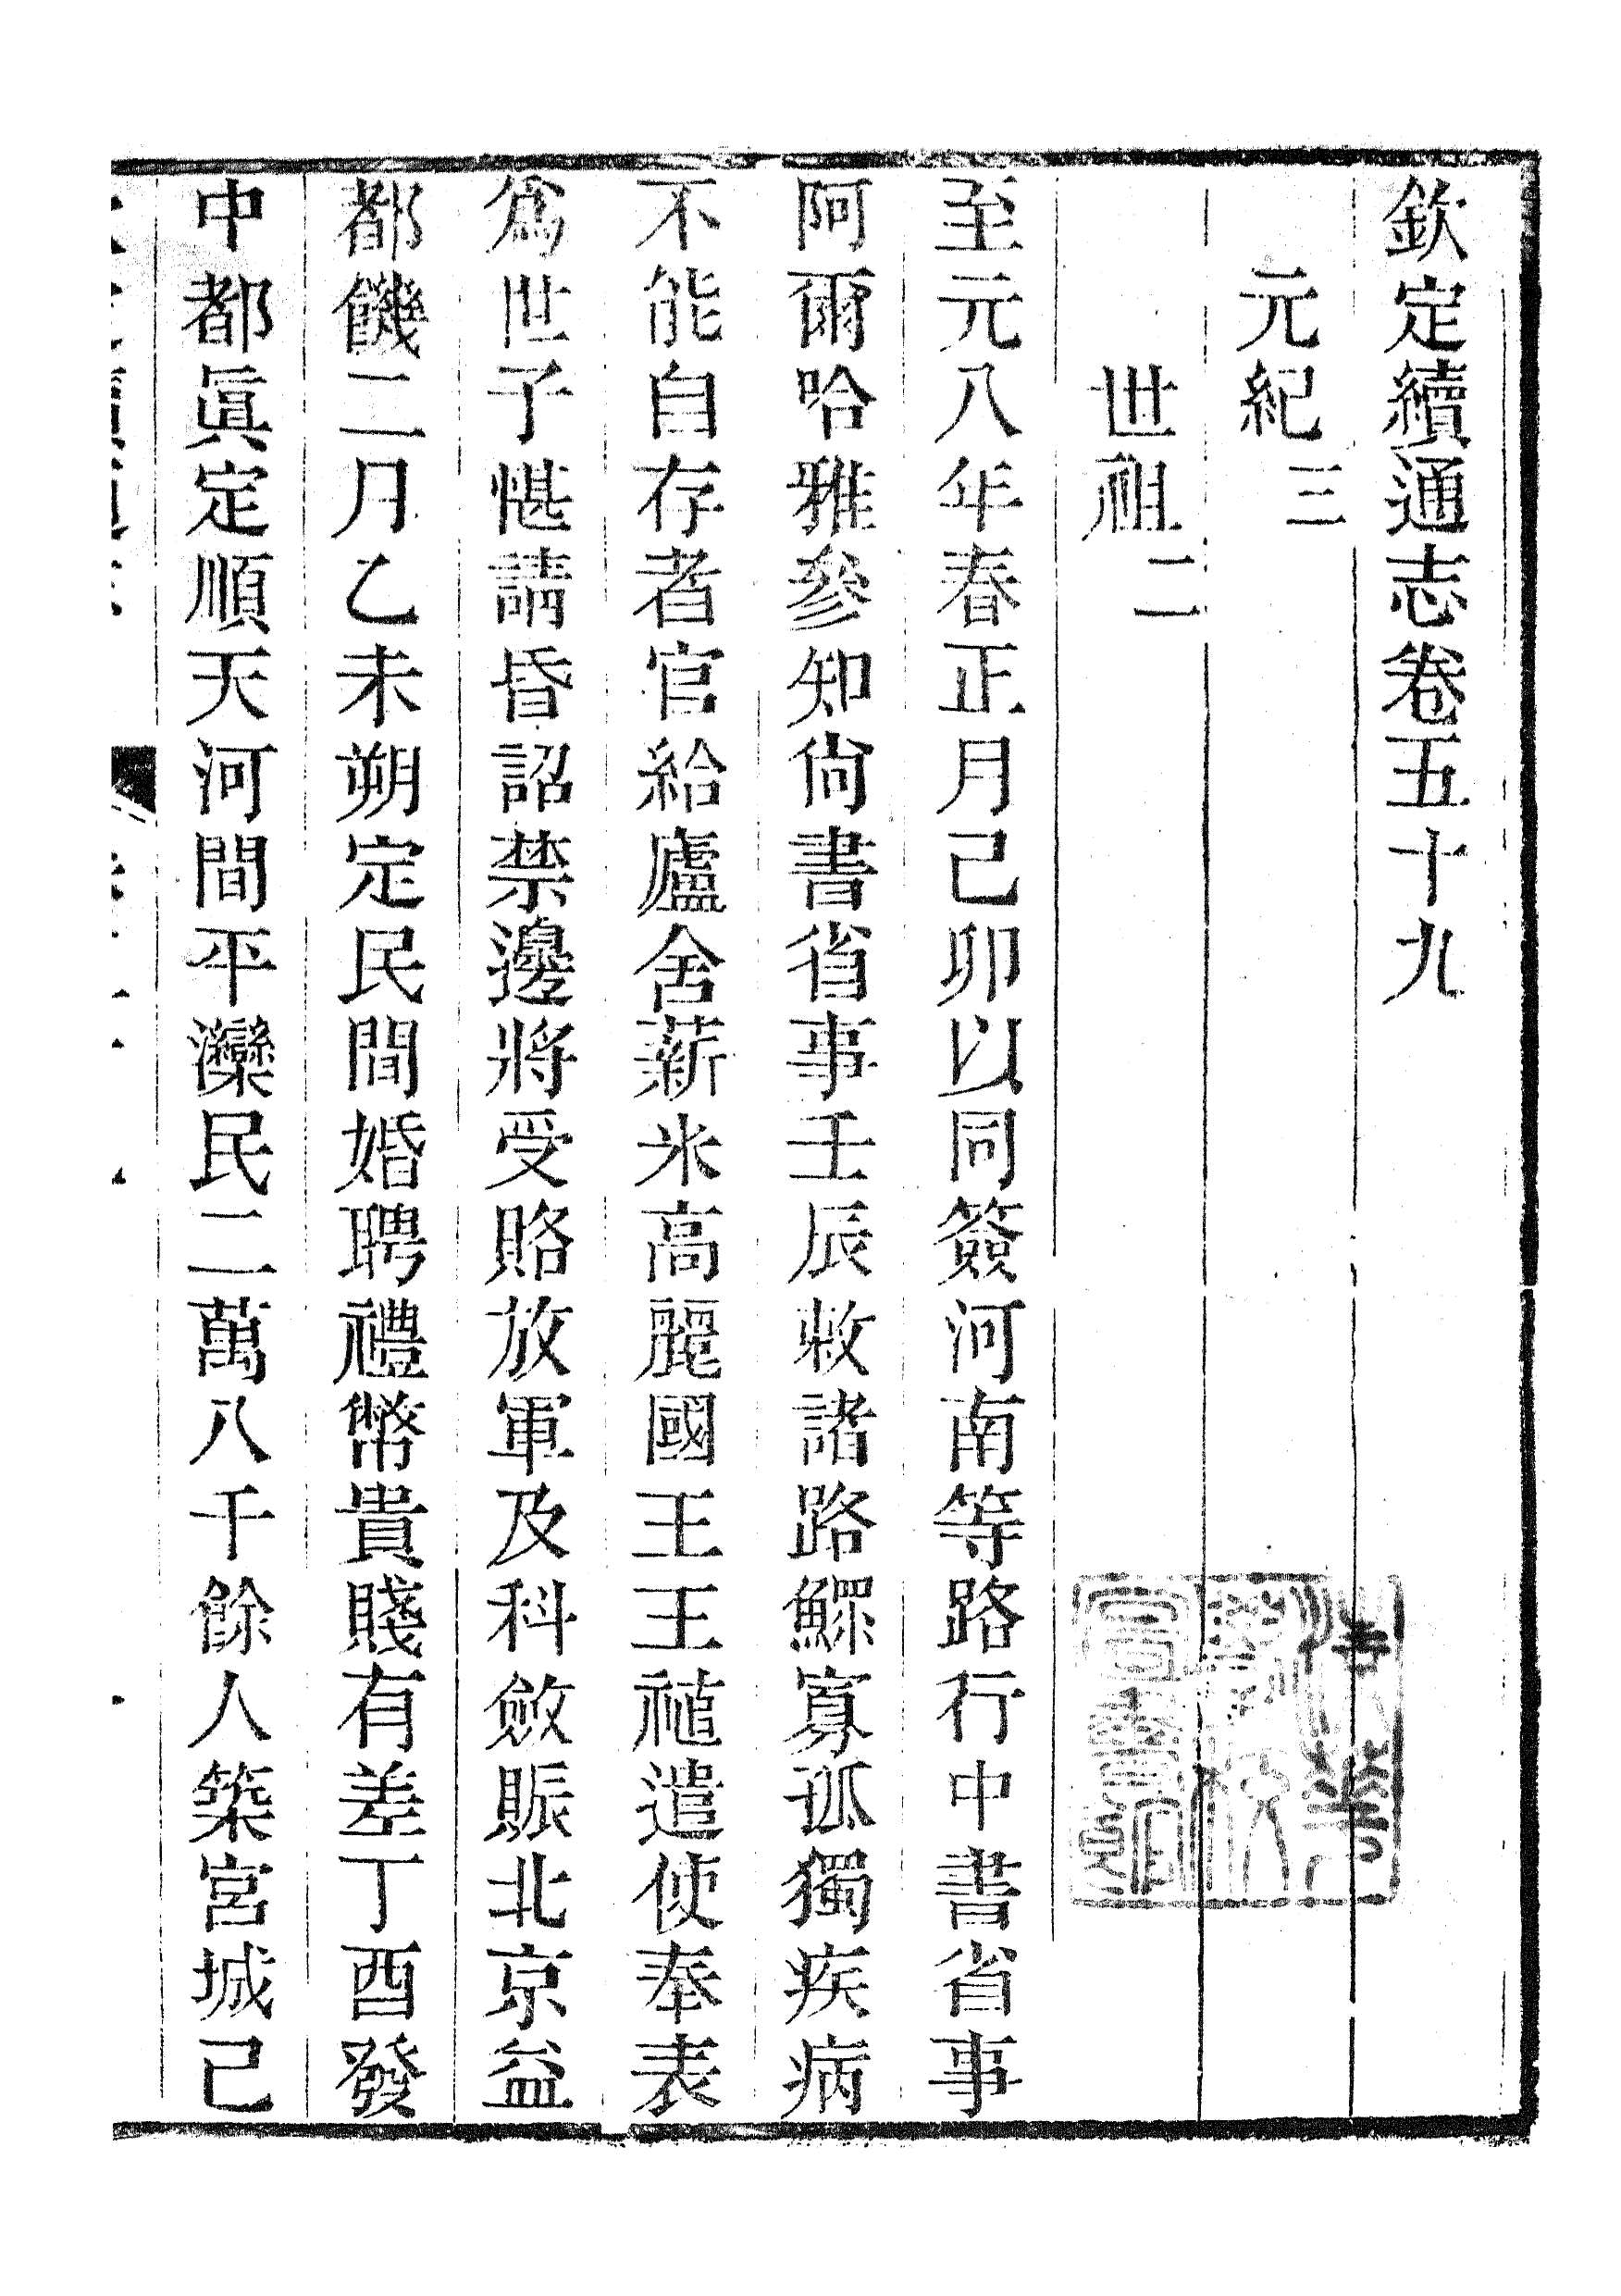 欽定續通志卷五十九
元紀三
世祖二
至元八年春正月己卯以同簽河南等路行中書省事
阿爾哈雅參知尙書省事壬辰敕諸路鰥寡孤獨疾病
不能自存者官給廬舍薪米高麗國王王禃遣使奉表
爲世子愖請昏詔禁邊將受賂放軍及科斂賑北京益
都饑二月乙未朔定民間婚聘禮幣貴賤有差丁酉發
中都眞定順天河間平灤民二萬八千餘人築宮城己